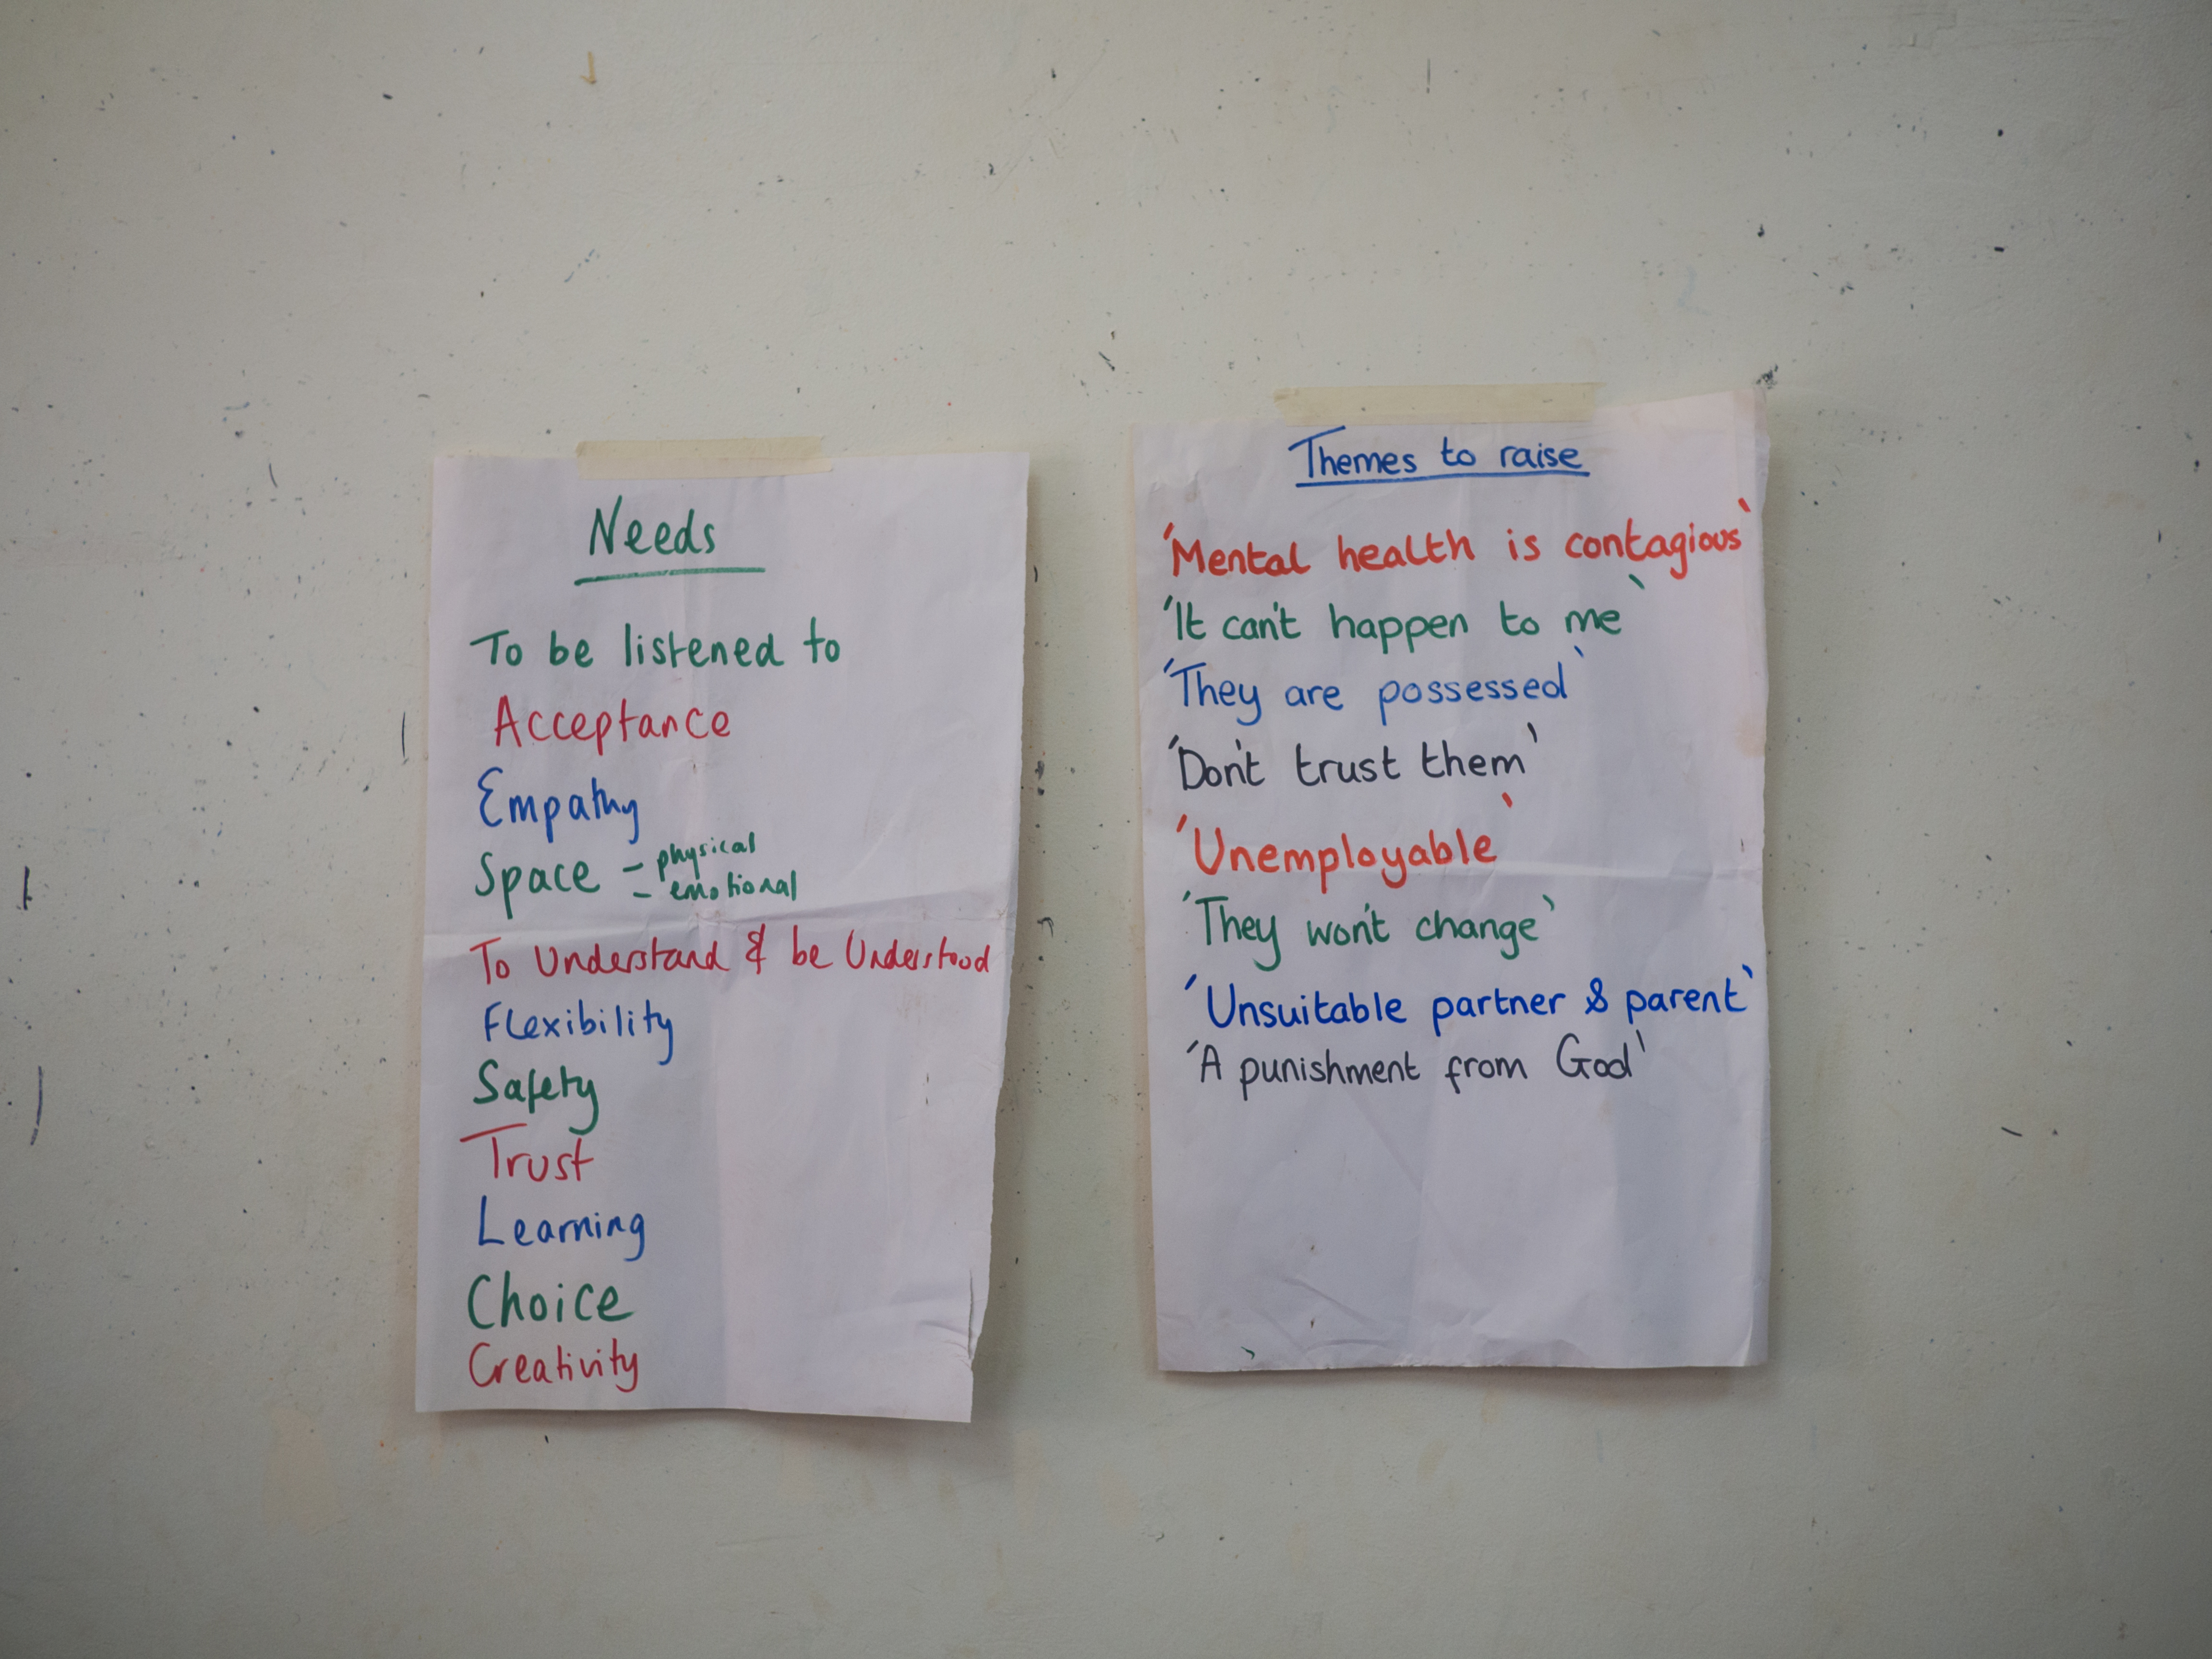 Needs
To be listened to
Acceptance
Empathy
Space - physical
- emotional
To Understand & be Understood
Flexibility
Safety
Trust
Learning
Choice
Creativity
Themes to raise
'Mental health is contagious'
'It can't happen to me'
'They are possessed'
'Don't trust them'
'Unemployable'
'They won't change'
'Unsuitable partner & parent'
'A punishment from God'